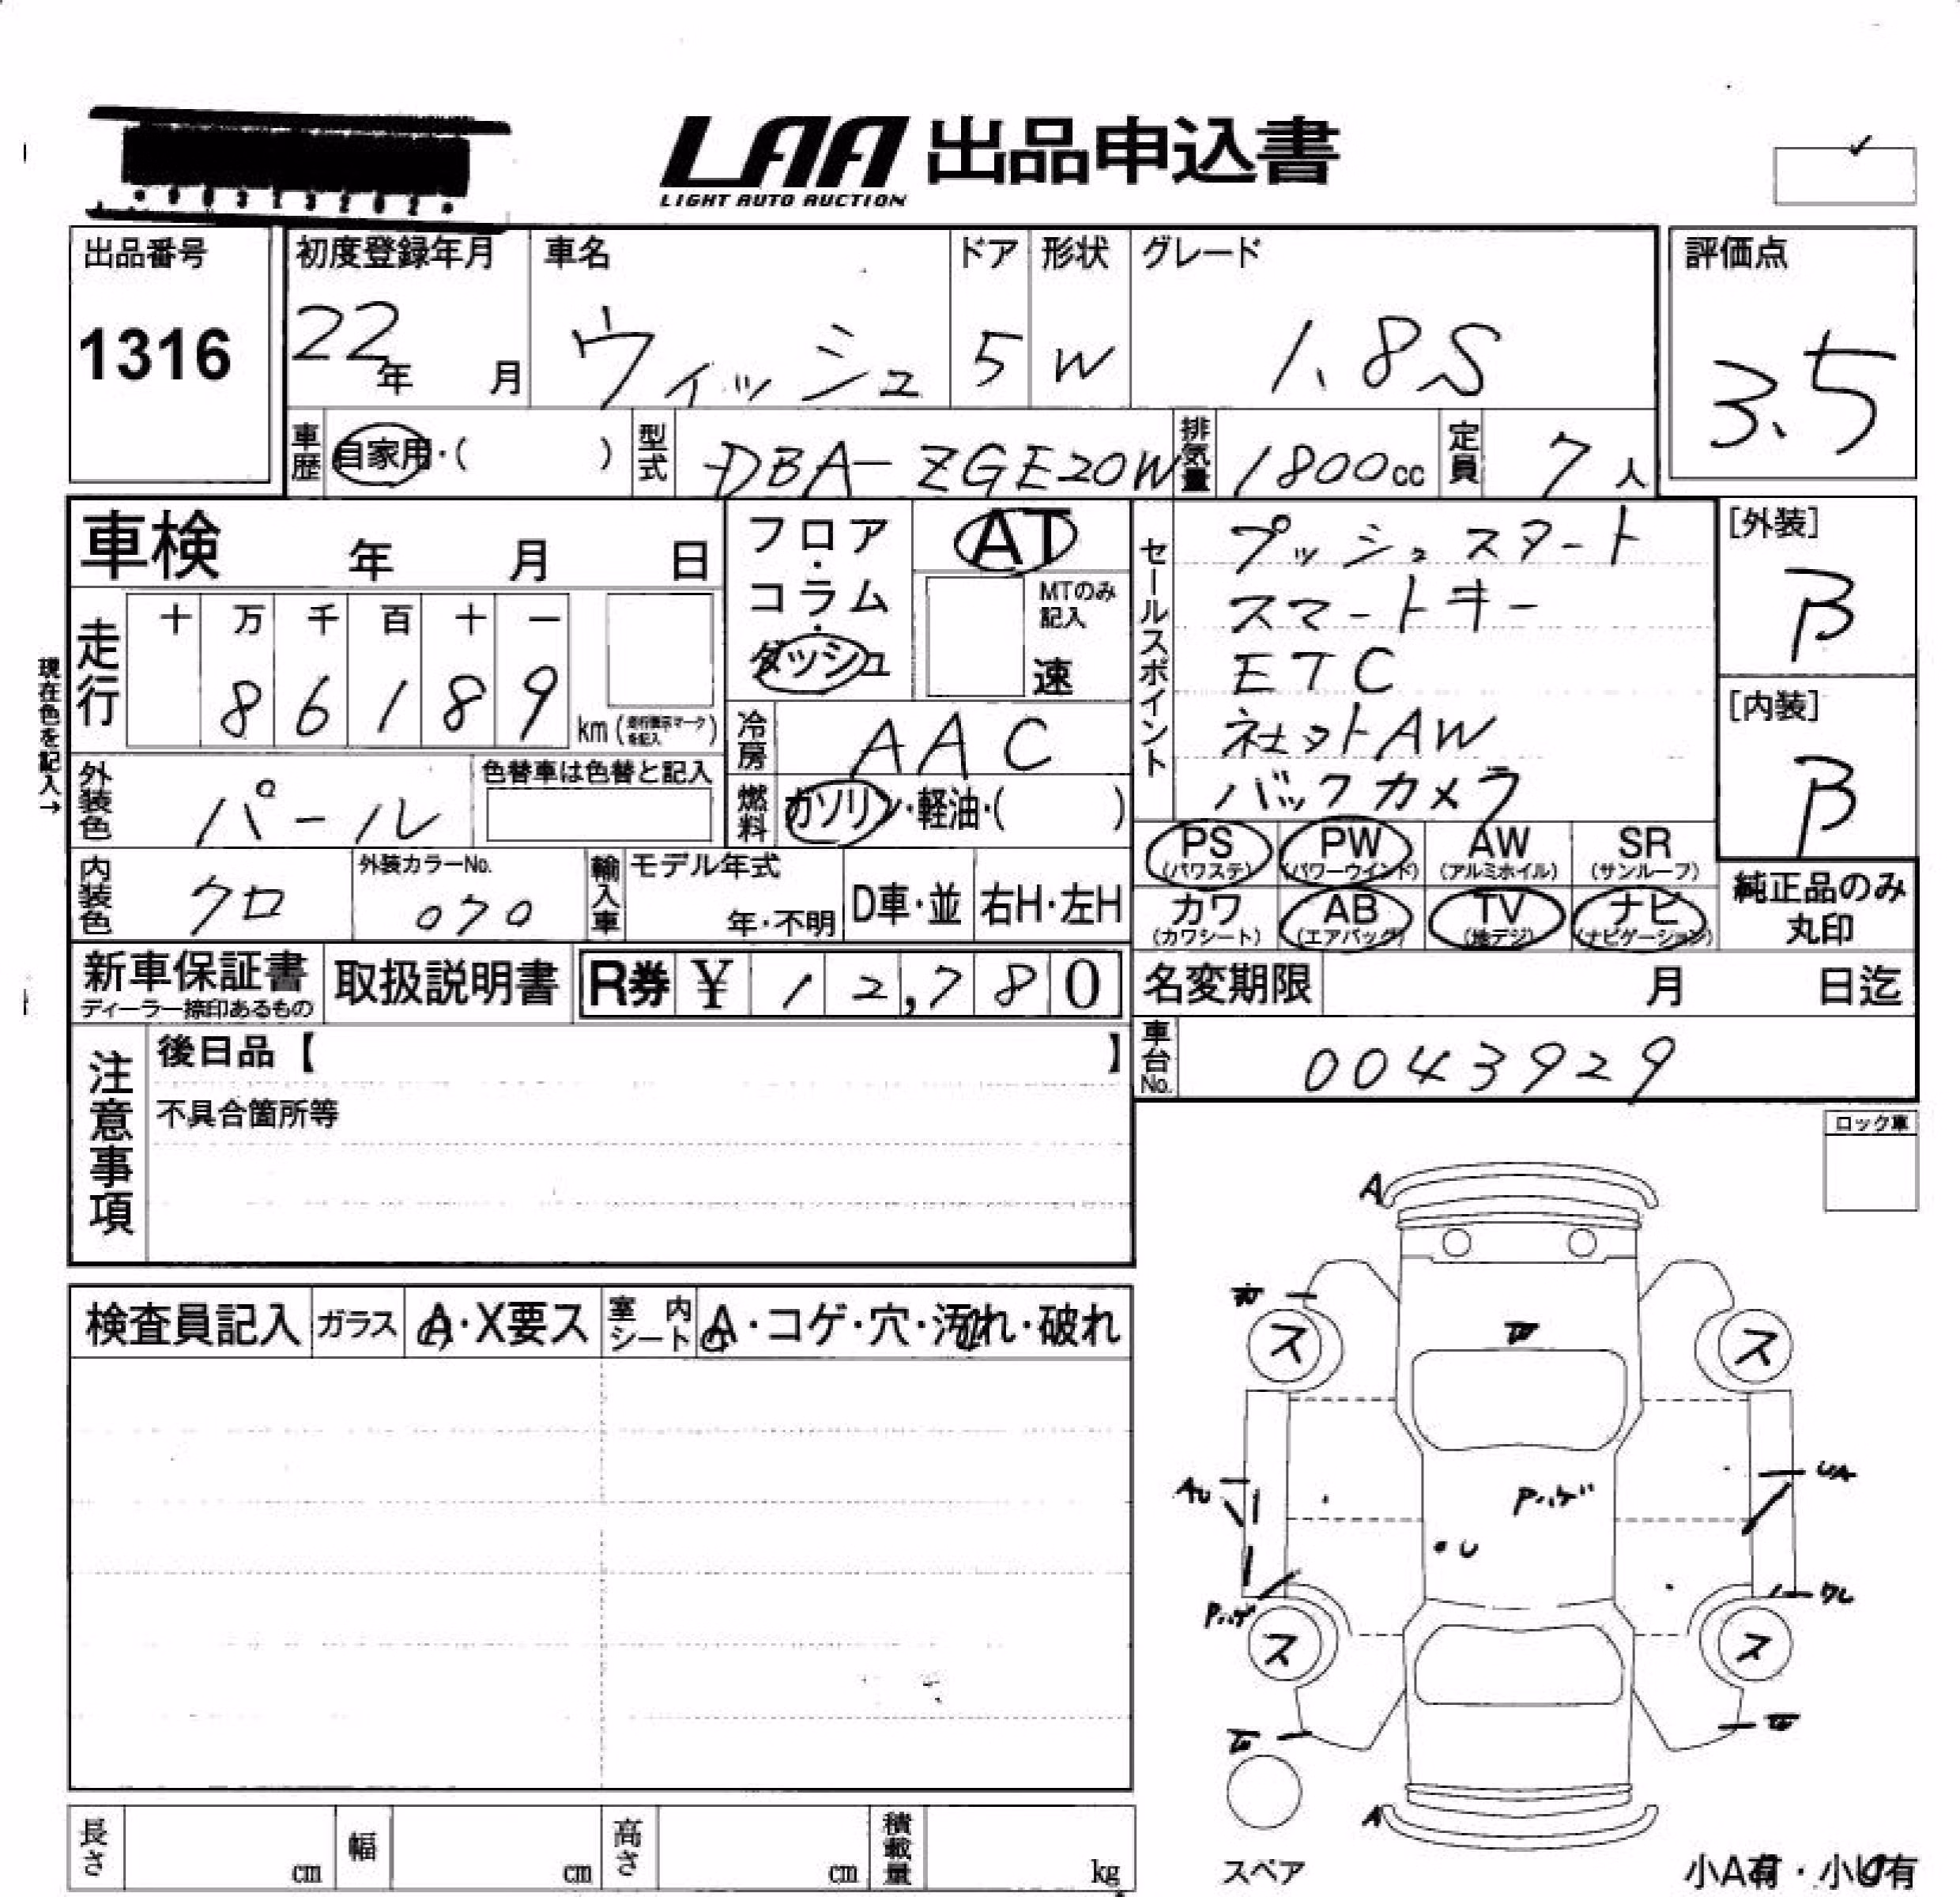 LAA 出品申込書
LIGHT AUTO AUCTION
出品番号 初度登録年月 車名 ドア 形状 グレード 評価点
1316 22年 月 ウィッシュ 5 W 1.8S 3.5
車歴 自家用・( ) 型式 DBA-ZGE20W 排気量 1800cc 定員 7人
車検 年 月 日 フロア・コラム・ダッシュ AT
MTのみ記入 速
セールスポイント
プッシュスタート
スマートキー
ETC
社外AW
バックカメラ
[外装]
B
[内装]
B
現在色を記入→
走行 十 万 千 百 十 一
8 6 1 8 9 km
冷房 AAC
外装色 パール 色替車は色替と記入
燃料 ガソリン・軽油・( )
PS (パワステ) PW (パワーウインド) AW (アルミホイル) SR (サンルーフ)
カワ (カワシート) AB (エアバッグ) TV (地デジ) ナビ (ナビゲーション)
純正品のみ
丸印
内装色 クロ 外装カラーNo. 070 輸入車 モデル年式 年・不明 D車・並 右H・左H
新車保証書 取扱説明書 R券 ¥ 12,780 名変期限 月 日迄
ディーラー捺印あるもの
車台No. 0043929
注意事項
後日品【 】
不具合箇所等
ロック車
検査員記入 ガラス A・X要ス 室内シート A・コゲ・穴・汚れ・破れ
A
ス ス
AU UA
Pハゲ
・U
Pハゲ
ス ス
A
スペア
小A有・小U有
長さ cm 幅 cm 高さ cm 積載量 kg